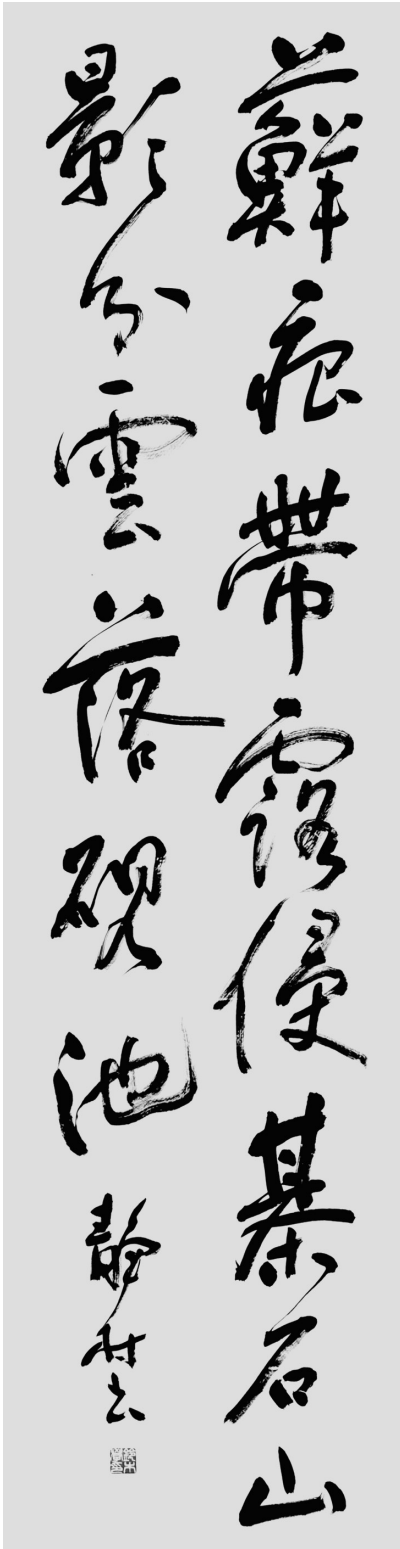 蘚痕帶露侵棊石山
影分雲落硯池
靜村書